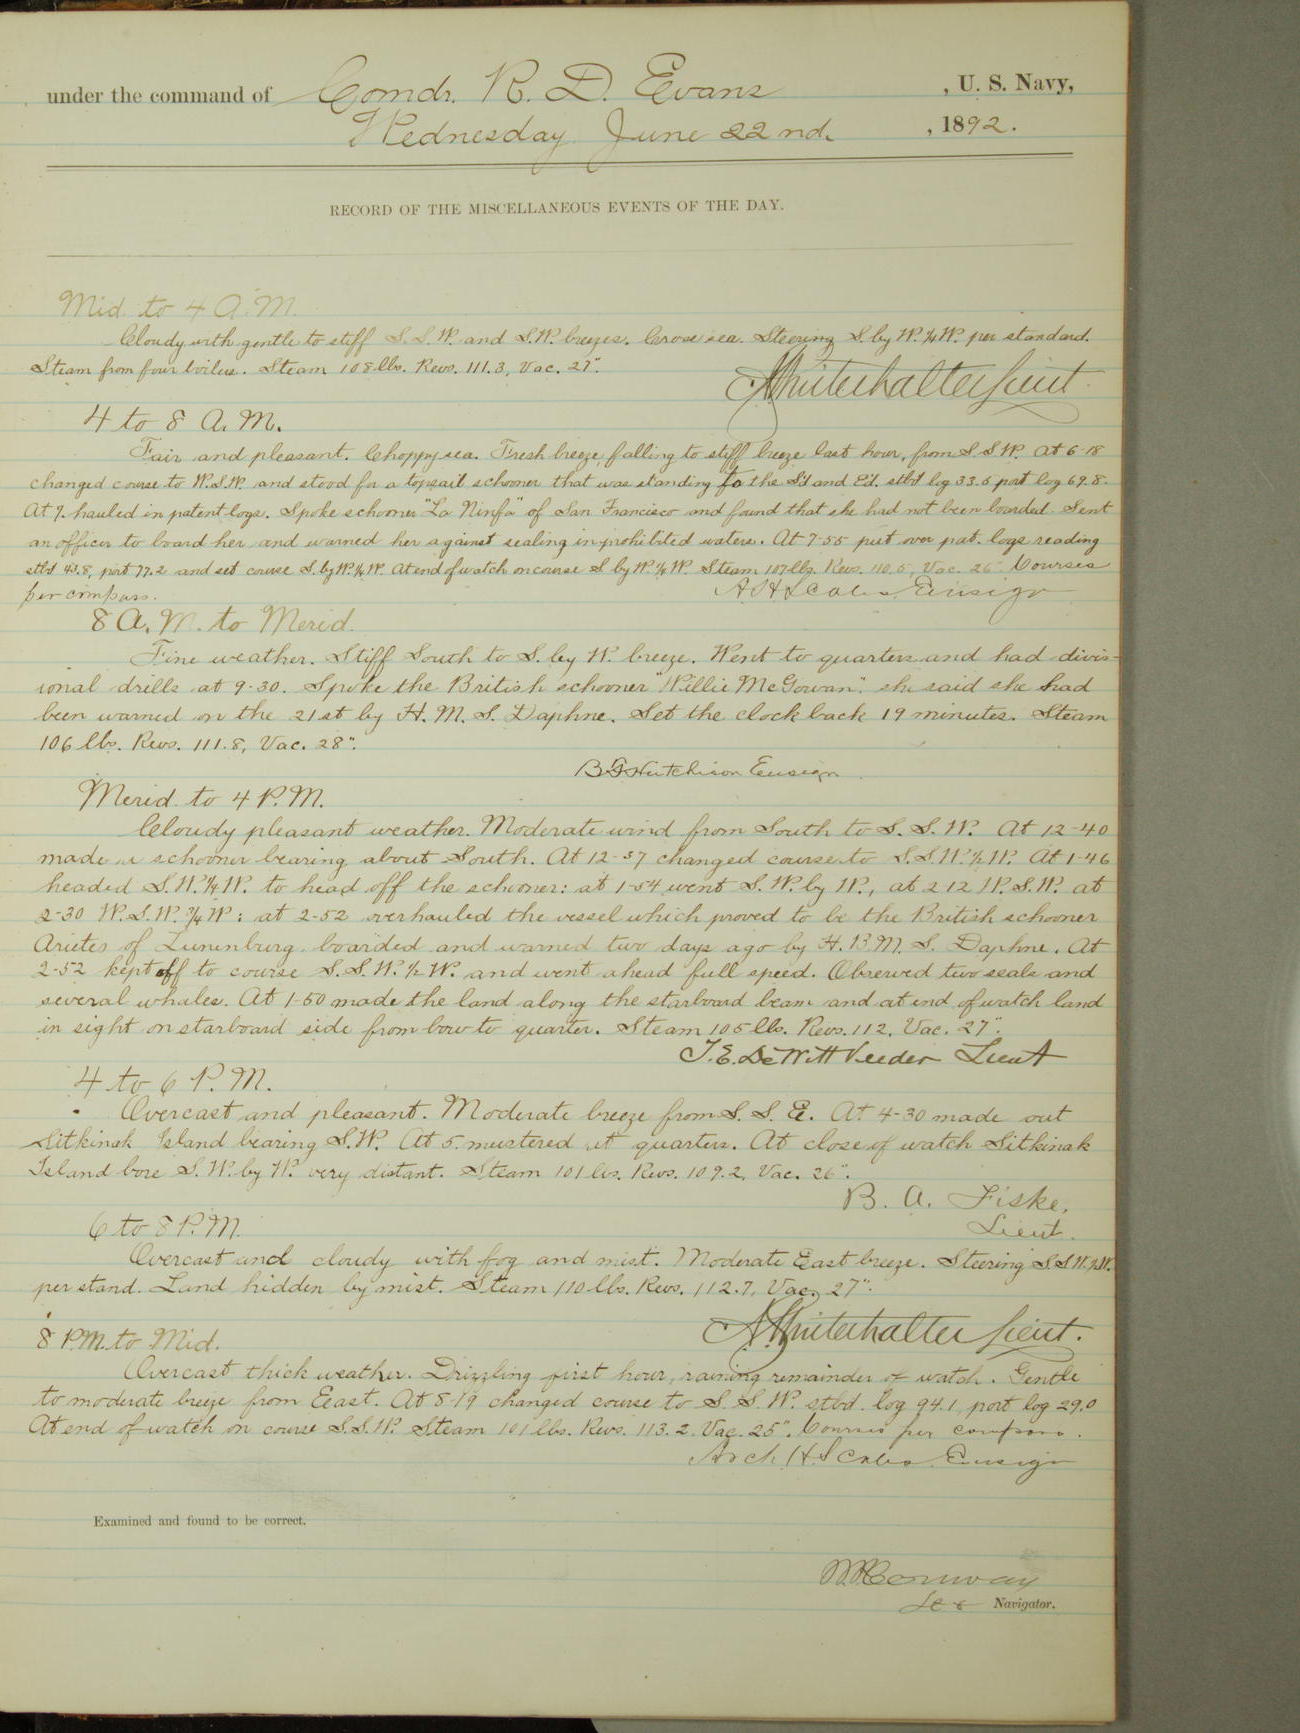 under the command of Comdr. R. D. Evans, U. S. Navy,
Wednesday June 22nd., 1892.
RECORD OF THE MISCELLANEOUS EVENTS OF THE DAY.
Mid. to 4 A.M.
Cloudy with gentle to stiff S.S.W. and S.W. breezes. Cross sea. Steering S. by W. 1/4 W. per standard.
Steam from four boilers. Steam 108 lbs. Revs. 111.3, Vac. 27".
A Winterhalter Lieut.
4 to 8 A.M.
Fair and pleasant. Choppy sea. Fresh breeze, falling to stiff breeze last hour, from S.S.W. At 6-18
changed course to W.S.W. and stood for a topsail schooner that was standing to the S'd and E'd. stb'd log 33.5 port log 69.8.
At 7. hauled in patent logs. Spoke schooner "La Ninfa" of San Francisco and found that she had not been boarded. Sent
an officer to board her and warned her against sealing in prohibited waters. At 7-55 put over pat. logs reading
stb'd 43.8, port 77.2 and set course S. by W. 1/4 W. At end of watch on course S by W. 1/4 W. Steam 107 lbs. Revs. 110.5, Vac. 26" Courses
per compass.
A H Scales Ensign
8 A.M. to Merid.
Fine weather. Stiff South to S. by W. breeze. Went to quarters and had divis-
ional drills at 9-30. Spoke the British schooner "Willie McGowan". she said she had
been warned on the 21st by H. M. S. Daphne. Set the clock back 19 minutes. Steam
106 lbs. Revs. 111.8, Vac. 28".
B F Hutchison Ensign
Merid. to 4 P.M.
Cloudy pleasant weather. Moderate wind from South to S. S. W. At 12-40
made a schooner bearing about South. At 12-57 changed course to S.S.W. 1/2 W. At 1-46
headed S.W. 1/4 W. to head off the schooner: at 1-54 went S. W. by W., at 2 12 W. S. W. at
2-30 W. S. W. 3/4 W: at 2-52 overhauled the vessel which proved to be the British schooner
Arietes of Lunenburg. boarded and warned two days ago by H. B. M. S. Daphne. At
2-52 kept off to course S. S. W. 1/2 W. and went ahead full speed. Observed two seals and
several whales. At 1-50 made the land along the starboard beam and at end of watch land
in sight on starboard side from bow to quarter. Steam 105 lbs. Revs. 112, Vac. 27".
T. E. DeWitt Veeder Lieut
4 to 6 P.M.
Overcast and pleasant. Moderate breeze from S. S. E. At 4-30 made out
Sitkinak Island bearing S.W. At 5. mustered at quarters. At close of watch Sitkinak
Island bore S. W. by W. very distant. Steam 101 lbs. Revs. 109.2, Vac. 26".
B. A. Fiske,
Lieut.
6 to 8 P.M.
Overcast and cloudy with fog and mist. Moderate East breeze. Steering S S W. 1/2 W.
per stand. Land hidden by mist. Steam 110 lbs. Revs. 112.7, Vac. 27".
A Winterhalter Lieut.
8 P.M. to Mid.
Overcast thick weather. Drizzling first hour, raining remainder of watch. Gentle
to moderate breeze from East. At 8-19 changed course to S. S. W. stbd. log 94.1, port log 29.0
At end of watch on course S.S.W. Steam 101 lbs. Revs. 113.2. Vac. 25". Courses per compass.
Arch H. Scales Ensign
Examined and found to be correct.
Conway
Navigator.